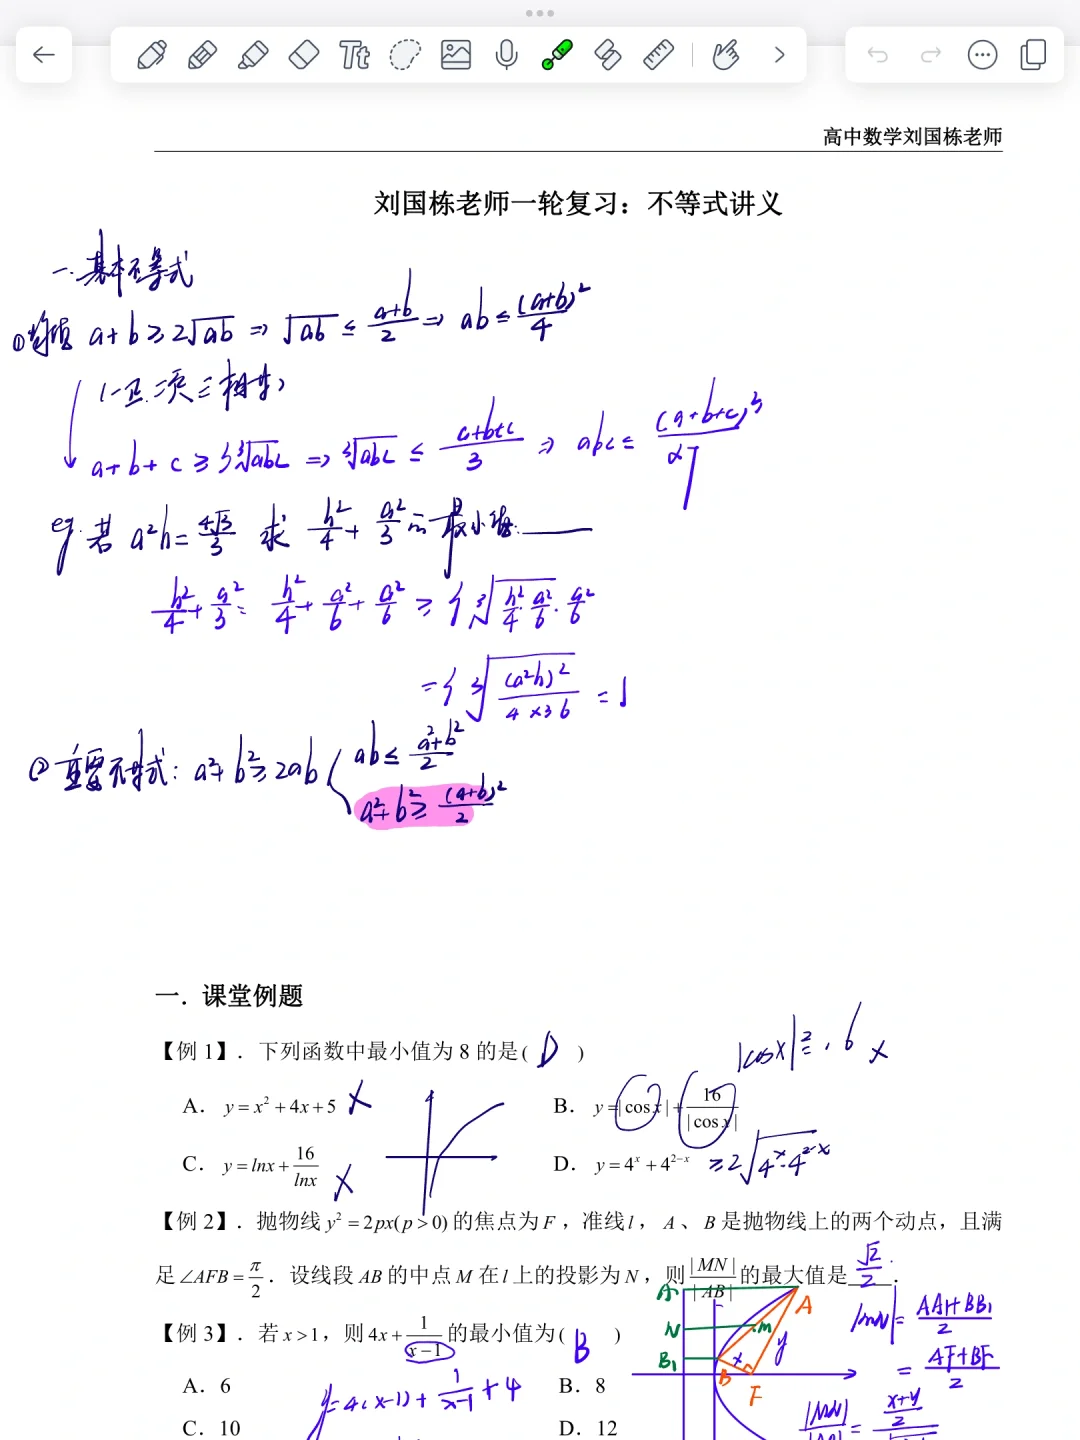 Tt
高中数学刘国栋老师
刘国栋老师一轮复习：不等式讲义
一.基本不等式
① 均值 a+b≥2√ab ⇒ √ab ≤ (a+b)/2 ⇒ ab ≤ (a+b)²/4
(一正.二定 三相等)
a+b+c ≥ 3∛abc ⇒ ∛abc ≤ (a+b+c)/3 ⇒ abc ≤ (a+b+c)³/27
eg. 若 a²h = 4√3/3 求 h²/4 + a²/3 的最小值:____
h²/4 + a²/3 = h²/4 + a²/6 + a²/6 ≥ 3∛(h²/4 · a²/6 · a²/6)
= 3∛((a²h)²/(4×36)) = 1
② 重要不等式: a²+b²≥2ab { ab ≤ (a²+b²)/2
a²+b² ≥ (a+b)²/2
一．课堂例题
【例 1】．下列函数中最小值为 8 的是( D )
|cosx|² = 16 ×
A． y = x² + 4x + 5 ×
B． y = |cos x| + 16/|cos x|
C． y = lnx + 16/lnx ×
D． y = 4ˣ + 4²⁻ˣ ≥2√(4ˣ·4²⁻ˣ)
【例 2】．抛物线 y² = 2px(p > 0) 的焦点为 F ，准线 l ， A 、 B 是抛物线上的两个动点，且满
足 ∠AFB = π/2 ．设线段 AB 的中点 M 在 l 上的投影为 N ，则 |MN|/|AB| 的最大值是 √2/2 ．
A₁ A
N M y
B₁ x B F
|MN| = (AA₁+BB₁)/2
= (AF+BF)/2
【例 3】．若 x > 1 ，则 4x + 1/(x−1) 的最小值为( B )
A．6
B．8
y=4(x-1) + 1/(x-1) + 4
C．10
D．12
|MN| = (x+y)/2